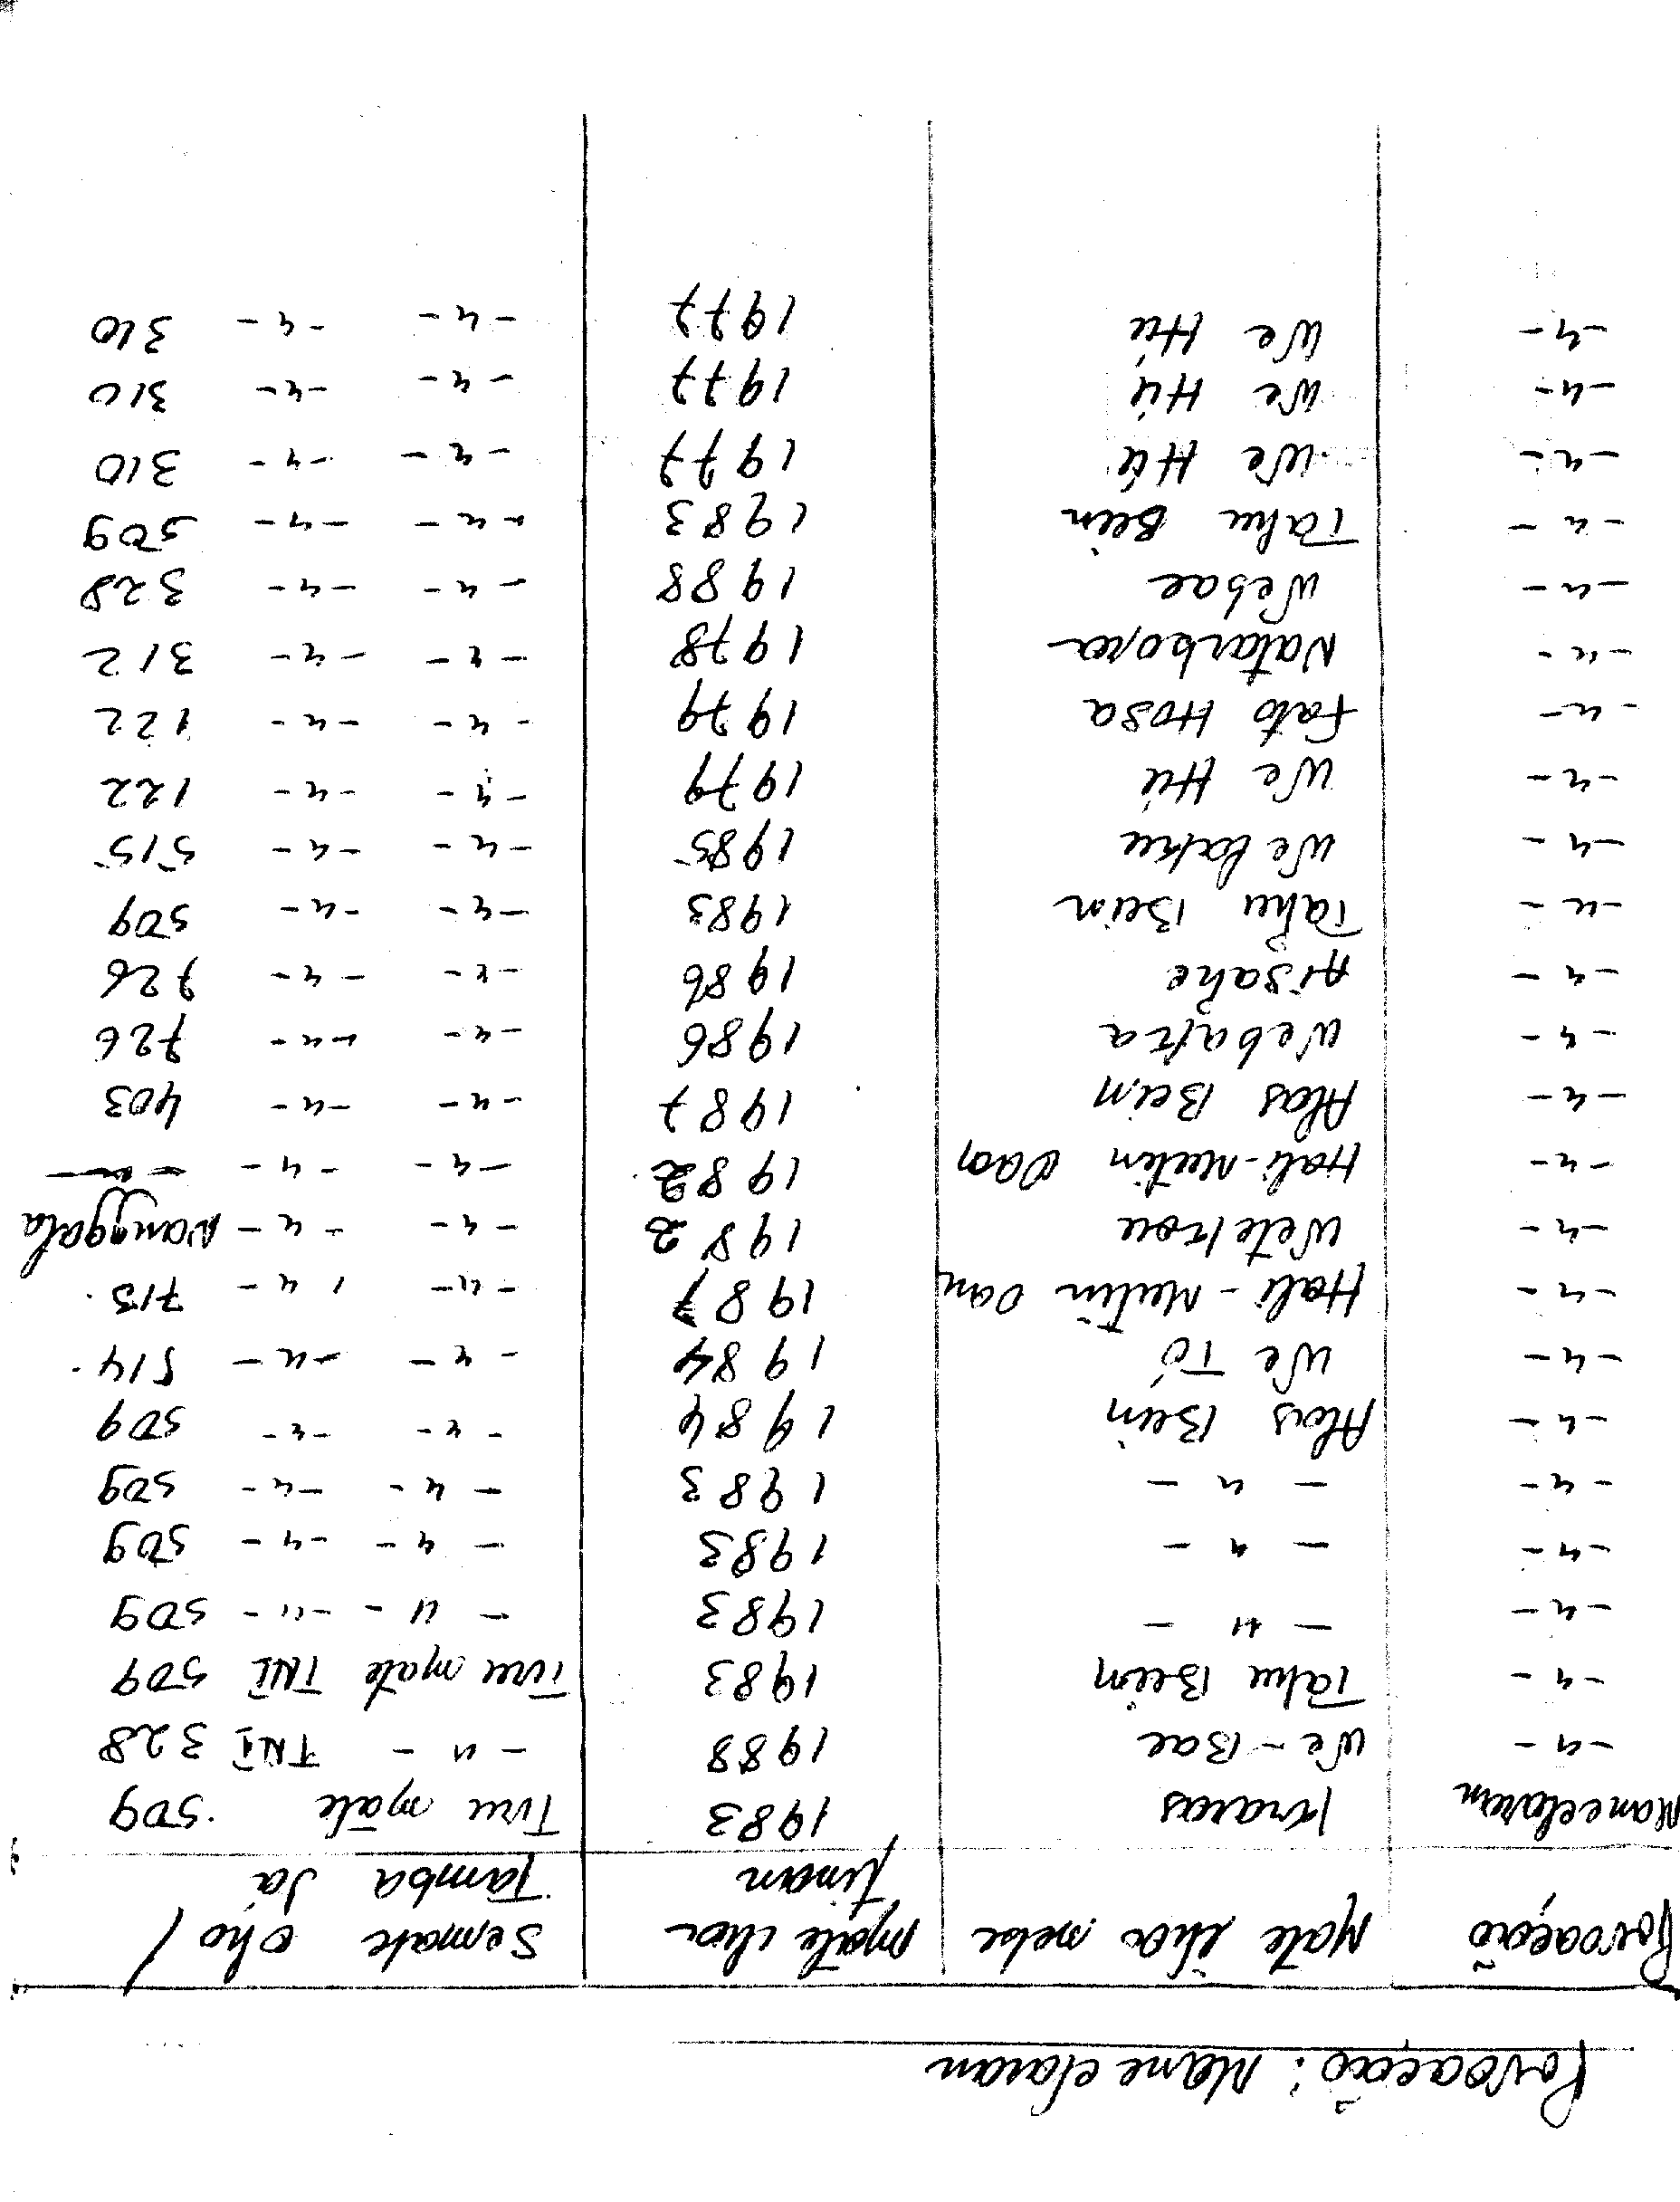 Povoação: Mane claran
Povoação Mate iha nebe mate iha Semak Oho /
tinan Tamba Sá
Maneclaran Kraras 1983 Tiru mate 509
-"- We-Bae 1988 -"- TNI 328
-"- Tahu Bein 1983 Tiru mate TNI 509
-"- -"- 1983 -"- -"- 509
-"- -"- 1983 -"- -"- 509
-"- -"- 1983 -"- -"- 509
-"- Alas Bein 1984 -"- -"- 509
-"- We Tó 1984 -"- -"- 514
-"- Hali-Mutin Oan 1987 -"- -"- 713
-"- 1982 -"- -"- Nanggala
-"- Hali-Mutin Oan 1982 -"- -"- -"-
-"- Alas Bein 1987 -"- -"- 403
-"- Webatza 1986 -"- -"- 726
-"- Aisahe 1986 -"- -"- 726
-"- Tahu Bein 1983 -"- -"- 509
-"- 1985 -"- -"- 515
-"- We Hú 1979 -"- -"- 122
-"- Fato Hosa 1979 -"- -"- 122
-"- Natarbora 1978 -"- -"- 312
-"- Webae 1988 -"- -"- 328
-"- Tahu Bein 1983 -"- -"- 509
-"- We Hú 1977 -"- -"- 310
-"- We Hú 1977 -"- -"- 310
-"- We Hú 1977 -"- -"- 310